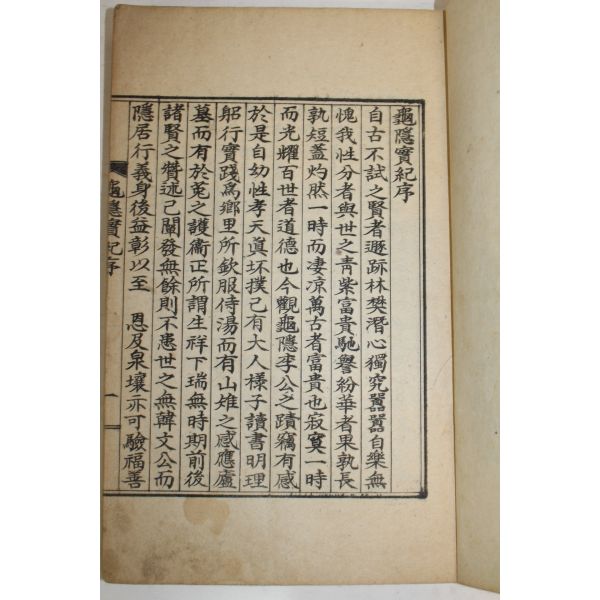 龜隱實紀序
自古不試之賢者遯跡林樊潛心獨究囂囂自樂無
愧我性分者與世之靑紫富貴馳譽紛華者果孰長
孰短盖灼然一時而凄凉萬古者富貴也寂寞一時
而光耀百世者道德也今觀龜隱李公之蹟竊有感
於是自幼性孝天眞坏撲己有大人樣子讀書明理
躬行實踐爲鄉里所欽服侍湯而有山雉之感應廬
墓而有於菟之護衛正所謂生祥下瑞無時期前後
諸賢之贊述己闡發無餘則不患世之無韓文公而
隱居行義身後益彰以至 恩及泉壤亦可驗福善
龜隱實紀序 一